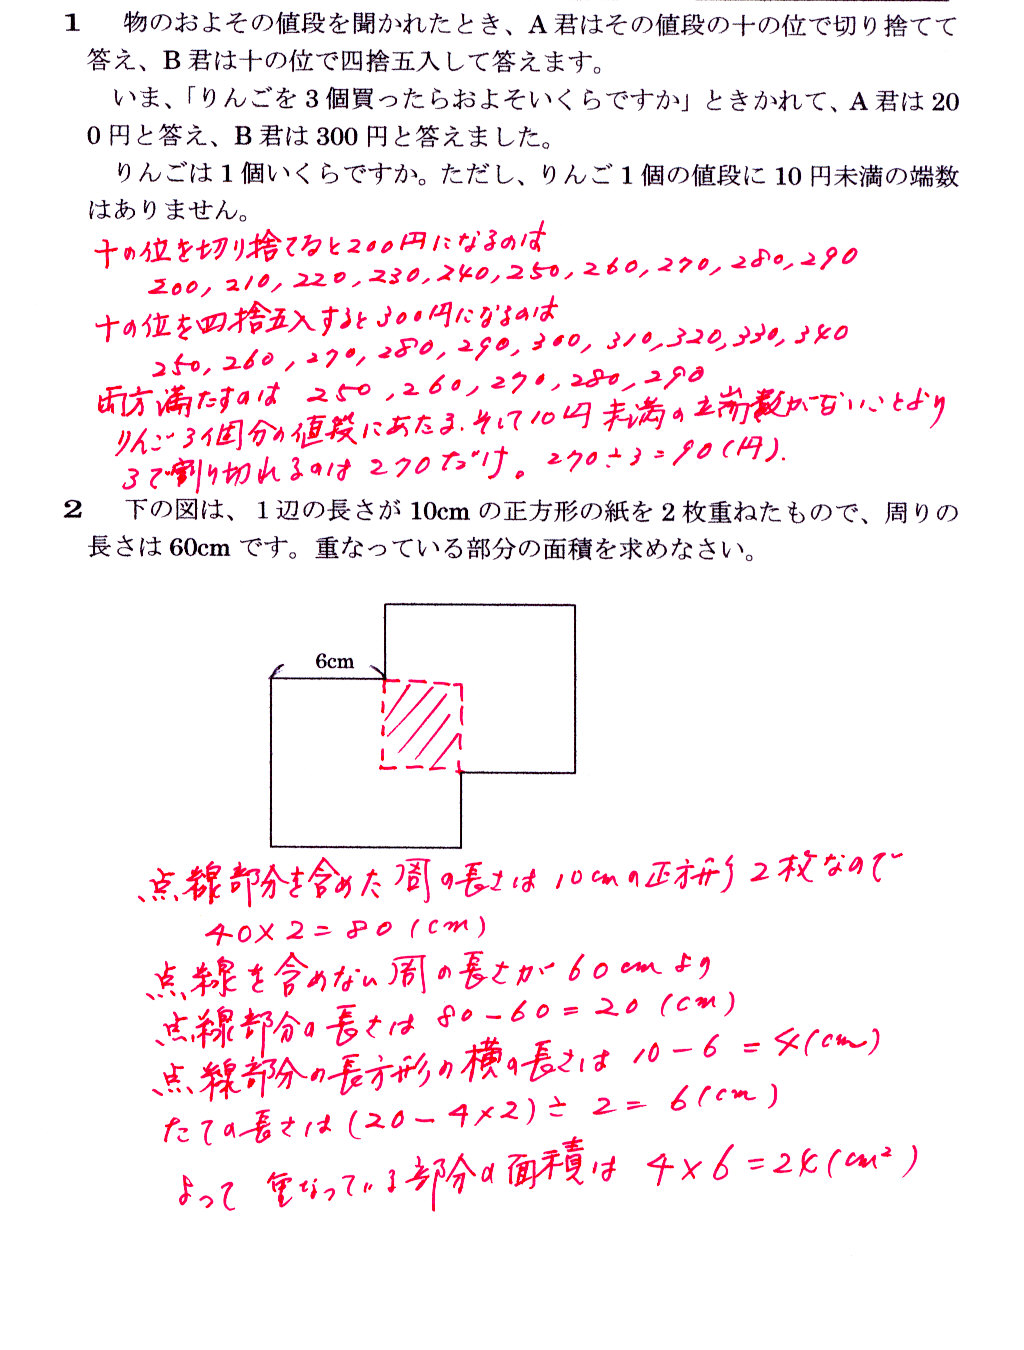 1 物のおよその値段を聞かれたとき、A君はその値段の十の位で切り捨てて
答え、B君は十の位で四捨五入して答えます。
いま、「りんごを3個買ったらおよそいくらですか」ときかれて、A君は20
0円と答え、B君は300円と答えました。
りんごは1個いくらですか。ただし、りんご1個の値段に10円未満の端数
はありません。
十の位を切り捨てると200円になるのは
200, 210, 220, 230, 240, 250, 260, 270, 280, 290
十の位を四捨五入すると300円になるのは
250, 260, 270, 280, 290, 300, 310, 320, 330, 340
両方満たすのは 250, 260, 270, 280, 290
りんご3個分の値段にあたる。そして10円未満の端数がないことより
3で割り切れるのは270だけ。 270÷3=90(円).
2 下の図は、1辺の長さが10cmの正方形の紙を2枚重ねたもので、周りの
長さは60cmです。重なっている部分の面積を求めなさい。
6cm
点線部分を含めた周の長さは10cmの正方形2枚なので
40×2=80(cm)
点線を含めない周の長さが60cmより
点線部分の長さは 80-60=20(cm)
点線部分の長方形の横の長さは 10-6=4(cm)
たての長さは(20-4×2)÷2=6(cm)
よって 重なっている部分の面積は 4×6=24(cm²)